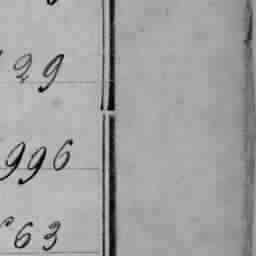 29
996
63